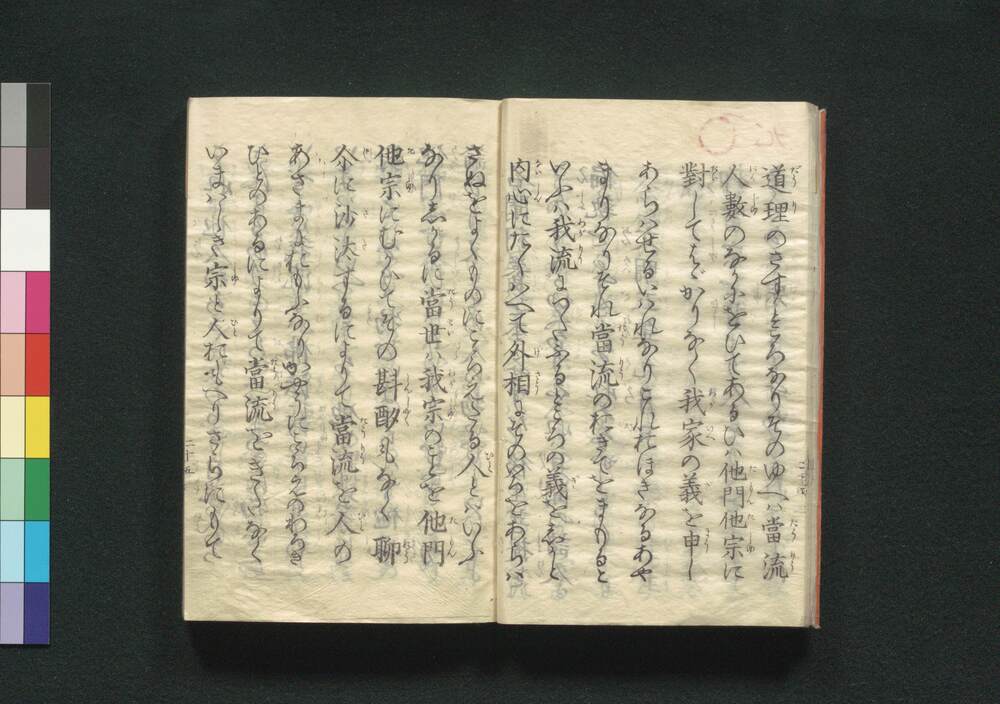 道理のさすところなりそのゆへハ當流
人數のなかにをいてあるひハ他門他宗に
對してはゞかりなく我家の義を申し
あらハせるいはれなりこれおほきなるあや
まりなりそれ當流のおきてをまもると
いふハ我流につたふるところの義をしかと
内心にたくハへて外相にそのいろをあらハ
さぬをよくものにこゝろえたる人とハいふ
なりしかるに當世ハ我宗のことを他門
他宗にむかひてその斟酌もなく聊
尒に沙汰するによりて當流を人の
あさまにおもふなりかやうにこゝろえのわろき
ひとのあるによりて當流をきたなく
いまハしき宗と人おもへりさらにもて
二十五